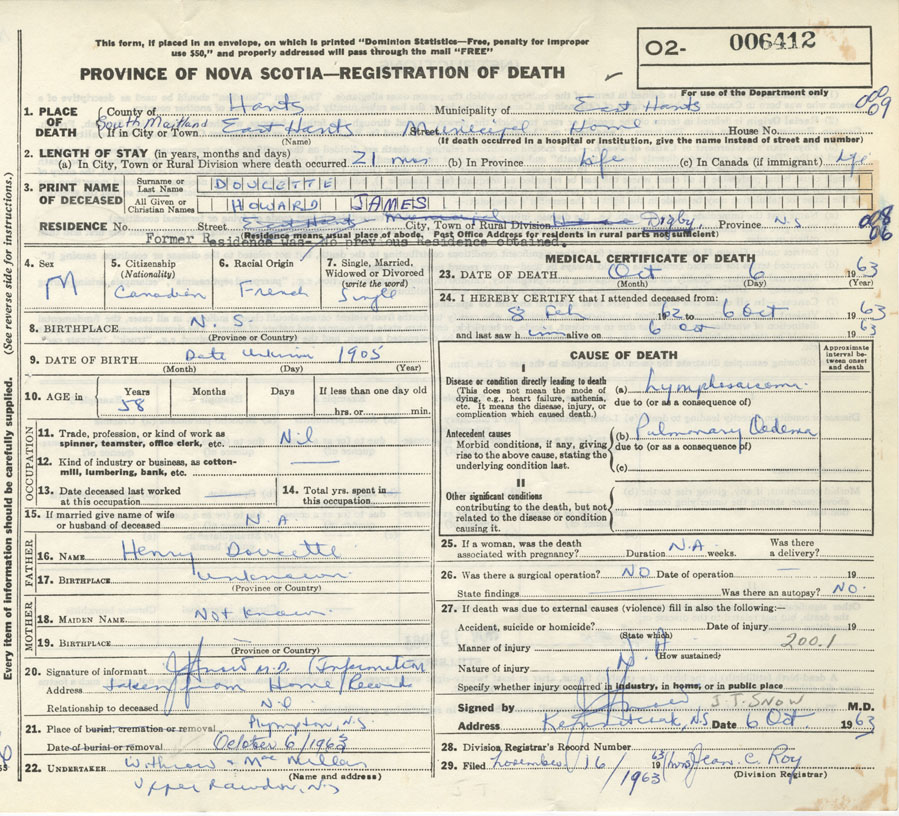 This form, if placed in an envelope, on which is printed "Dominion Statistics—Free, penalty for improper
use $50," and properly addressed will pass through the mail "FREE"
O2- 006412
PROVINCE OF NOVA SCOTIA—REGISTRATION OF DEATH
For use of the Department only
1. PLACE OF DEATH County of Hants Municipality of East Hants 09
South Maitland If in City or Town East Hants Street Municipal Home House No.
(Name) (If death occurred in a hospital or institution, give the name instead of street and number)
2. LENGTH OF STAY (in years, months and days)
(a) In City, Town or Rural Division where death occurred 21 mos (b) In Province Life (c) In Canada (if immigrant) Life
3. PRINT NAME OF DECEASED
Surname or Last Name DOUCETTE
All Given or Christian Names HOWARD JAMES
RESIDENCE No. East Hants Street Municipal City, Town or Rural Division Home Digby, Province N.S
(Residence means usual place of abode, Post Office Address for residents in rural parts not sufficient)
Former Residence was- No previous residence obtained.
4. Sex M
5. Citizenship (Nationality) Canadian
6. Racial Origin French
7. Single, Married, Widowed or Divorced (write the word) Single
8. BIRTHPLACE N.S.
(Province or Country)
9. DATE OF BIRTH Date unknown 1905
(Month) (Day) (Year)
10. AGE in Years 58 Months Days If less than one day old
hrs. or min.
OCCUPATION
11. Trade, profession, or kind of work as spinner, teamster, office clerk, etc. Nil
12. Kind of industry or business, as cotton-mill, lumbering, bank, etc.
13. Date deceased last worked at this occupation
14. Total yrs. spent in this occupation
15. If married give name of wife or husband of deceased N.A.
FATHER
16. NAME Henry Doucette
17. BIRTHPLACE unknown
(Province or Country)
MOTHER
18. MAIDEN NAME Not known
19. BIRTHPLACE
(Province or Country)
20. Signature of informant J T Snow M.D. (Information
Address taken from Home Records
Relationship to deceased Nil
21. Place of burial, cremation or removal Plympton, N.S.
Date of burial or removal October 6/1963
22. UNDERTAKER Withrow & MacMillan
(Name and address)
Upper Rawdon, N.S
MEDICAL CERTIFICATE OF DEATH
23. DATE OF DEATH Oct 6 1963
(Month) (Day) (Year)
24. I HEREBY CERTIFY that I attended deceased from:
8 Feb 1962 to 6 Oct 1963
and last saw him alive on 6 Oct 1963
CAUSE OF DEATH
Approximate interval between onset and death
I
Disease or condition directly leading to death
(This does not mean the mode of dying, e.g., heart failure, asthenia, etc. It means the disease, injury, or complication which caused death.)
(a) Lymphosarcoma
due to (or as a consequence of)
Antecedent causes
Morbid conditions, if any, giving rise to the above cause, stating the underlying condition last.
(b) Pulmonary Oedema
due to (or as a consequence of)
(c)
II
Other significant conditions
contributing to the death, but not related to the disease or condition causing it.
25. If a woman, was the death associated with pregnancy? Duration N.A. weeks. Was there a delivery?
26. Was there a surgical operation? NO Date of operation 19
State findings Was there an autopsy? NO.
27. If death was due to external causes (violence) fill in also the following:—
Accident, suicide or homicide? Date of injury 19
(State which)
Manner of injury N.A 200.1
(How sustained)
Nature of injury
Specify whether injury occurred in industry, in home, or in public place
Signed by J T Snow J.T. SNOW M.D.
Address Kennetcook, N.S Date 6 Oct 1963
28. Division Registrar's Record Number
29. Filed November 16/1963 19 63 (Mrs) Jean C. Roy
(Division Registrar)
Every item of information should be carefully supplied. (See reverse side for instructions.)